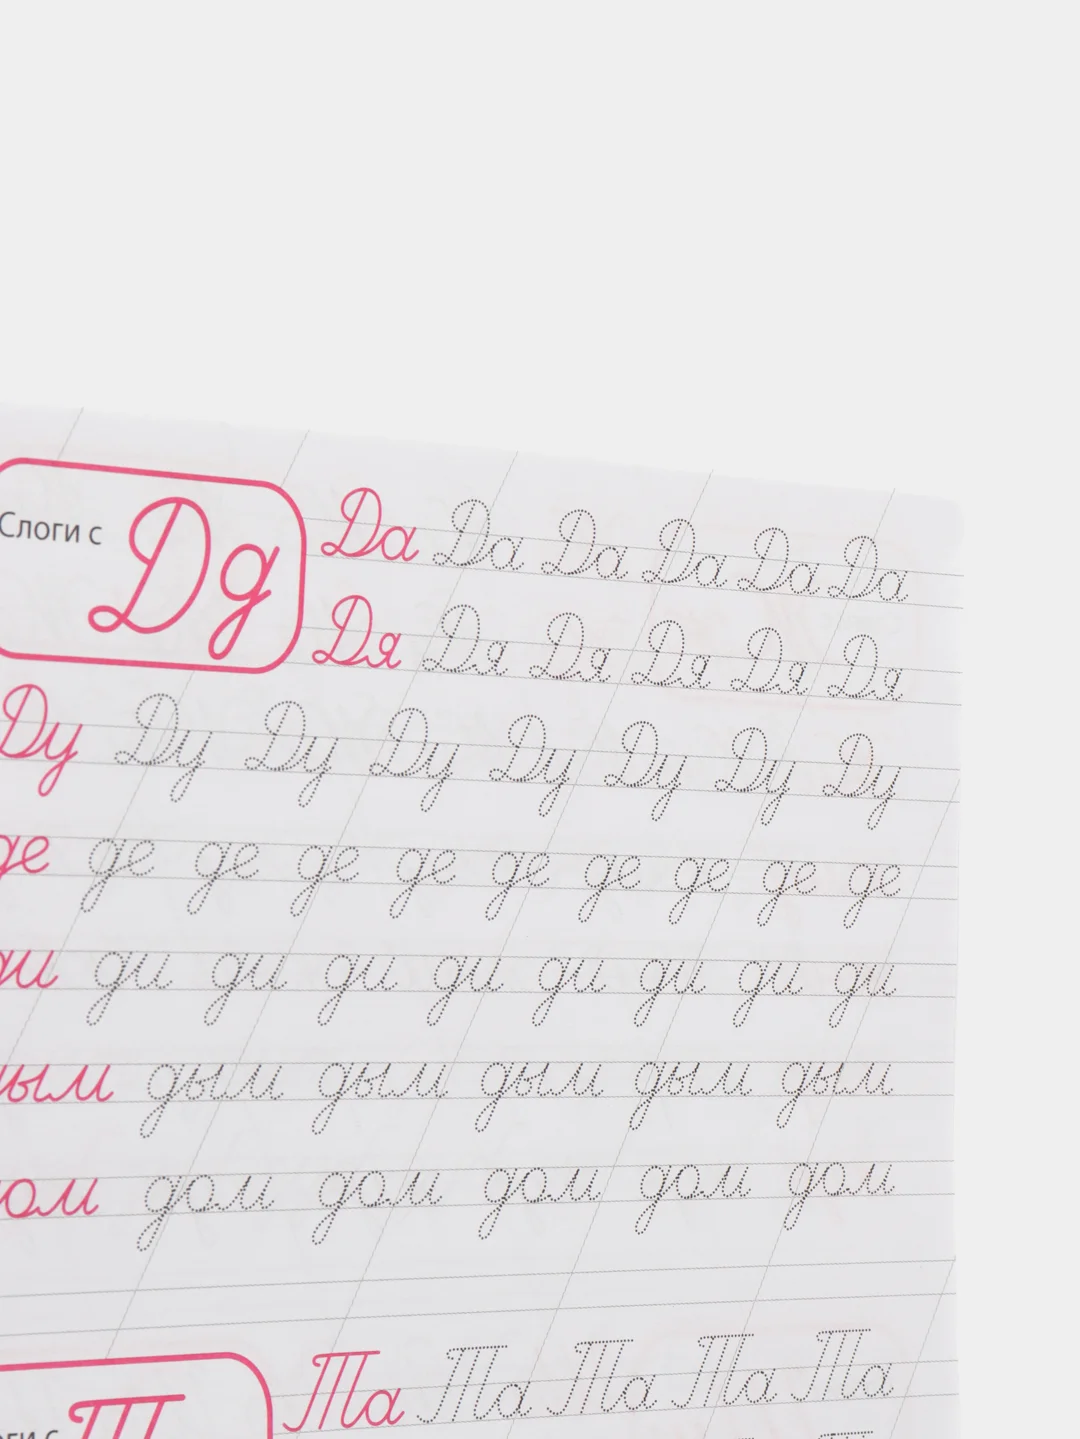 Слоги с Дд
Да Да Да Да Да Да
Дя Дя Дя Дя Дя Дя
Ду Ду Ду Ду Ду Ду Ду Ду
де де де де де де де де де де
ди ди ди ди ди ди ди ди ди
дым дым дым дым дым
дом дом дом дом дом
Та Та Та Та Та